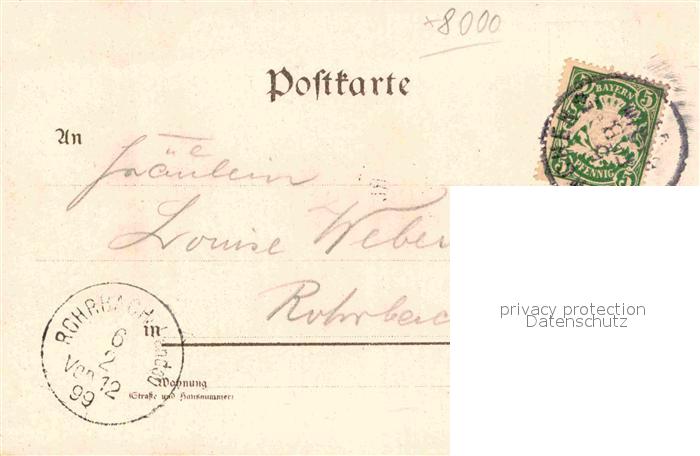 ×8000
Postkarte
BAYERN
5 5
PFENNIG
5
An
Fräulein
Louise Weber
Rohrbac
in
ROHRBACH
6
2
Vor. 12
99
Wohnung
(Straße und Hausnummer)
privacy protection
Datenschutz